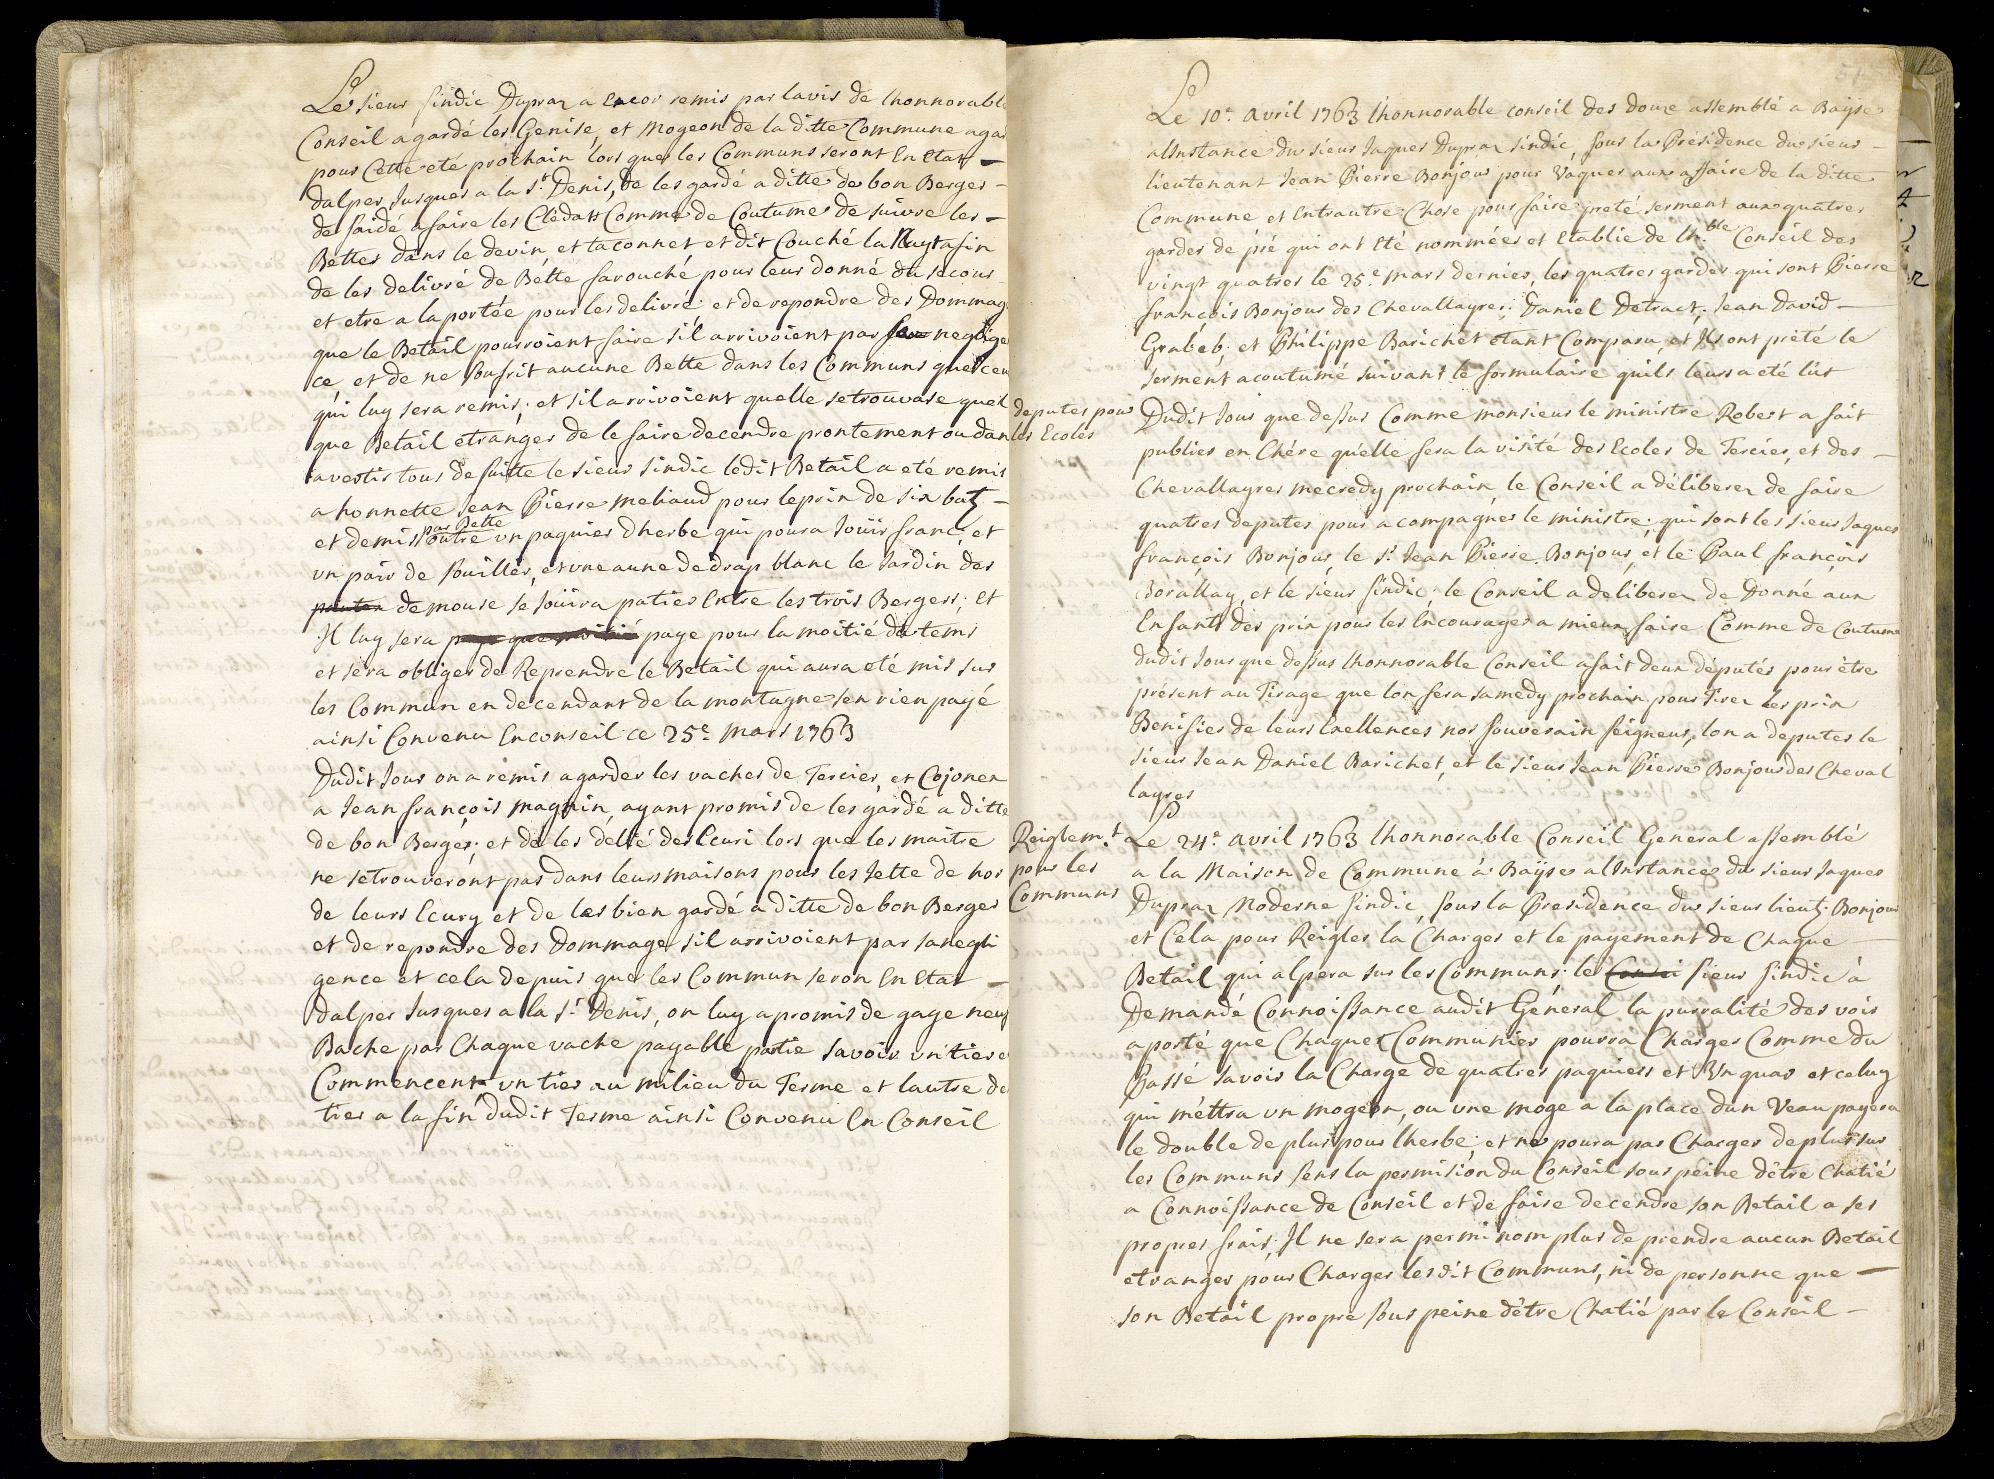 Le sieur sindic Dupraz a Encor remis par lavis de lhonnorable
Conseil a gardé les Genise, et Mogeon de la ditte Commune a gar
pour Cette eté prochain lors que les Communs seront En Etat
dalper Jusques a la St Denis, de les gardé a ditte de bon Berger
de saidé a faire les Clédars Comme de Coutume de suivre les
Bettes dans le devin, et taconnet et dit Couché la Nuyt afin
de les delivré de Bette farouché pour leur donné du secour
et etre a la portée pour les delivré, et de repondre des Dommag
que le Betail pourroient faire s'il arrivoient par neglige
ce, et de ne soufrit aucune Bette dans les Communs que ceu
qui luy sera remis; et sil arrivoient quelle se trouvase quel
que Betail etranger de le faire decendre prontement ou dan
avertir tous de suitte le sieur sindic ledit Betail a eté remis
a honnette Jean Pierre meliaud pour leprix de six batz
et demis par Bette outre un paquier dherbe qui poura Jouir franc, et
un pair de souillier, et une aune de drap blanc le Jardin des
panten de mouse se Jouira patier Entre les trois Bergers; Et
Il luy sera paye pour la moitié du tems
et sera obliger de Reprendre le Betail qui aura eté mis sur
les Commun en decendant de la montagne sen rien payé
ainsi Convenu En conseil ce 25e mars 1763
Dudit Jour on a remis a garder les vaches de Tercier, et Cojonex
a Jean françois magnin, ayant promis de les gardé a ditte
de bon Berger; et de les delié des Ecuri lors que les maitre
ne se trouveront pas dans leurs maisons pour les Jette de hor
de leurs Ecury et de les bien gardé a ditte de bon Berger
et de repondre des Dommage sil arrivoient par sa negli
gence et cela depuis que les Commun seron En Etat
dalper Jusques a la St Denis, on luy a promis de gage neuf
Bache par Chaque vache payable partie savoir un tiere
Commencent un tier au milieu du Terme et lautre de
tier a la fin dudit Terme ainsi Convenu En Conseil

51
Le 10e avril 1763 lhonnorable conseil des douze assemblé a Bayse
alInstance du sieur Jaques Dupraz sindic, sous la Présidence du sieur
lieutenant Jean Pierre Bonjour pour Vaquer aux affaire de la ditte
Commune et Entrautre Chose pour faire preté serment aux quatres
gardes de pré qui ont Eté nommées et Etablie de lh.ble Conseil des
vingt quatres le 25e mars dernier, les quatres gardes qui sont Pierre
françois Bonjour des Chevallayres; Daniel Detract; Jean David
Grabeb; et Philippe Barichet etant Comparu, et Ils ont prété le
serment acoutumé suivant le formulaire quils leurs a eté lût
deputes pour
les Ecoles
Dudit Jour que dessus Comme monsieur le ministre Robert a fait
publier en Chére quélle fera la visité des Ecoles de Tercier, et des
Chevallayres mecredy prochain, le Conseil a déliberer de faire
quatres deputes pour acompagner le ministre; qui sont les sieur Jaques
françois Bonjour, le sr Jean Pierre Bonjour, et le Paul françois
Borallay, et le sieur sindic; le Conseil a deliberer de Donné aux
Enfants des prix pour les Encourager a mieux faire Comme de Coutume
dudit Jour que dessus lhonnorable Conseil a fait deux députés pour être
présent au Tirage que lon fera samedy prochain pour Tirer les prix
Benifier de leurs Exellences nos souverain seigneur, lon a deputer le
sieur Jean Daniel Barichet, et le sieur Jean Pierre Bonjour des Cheval
layres
Reiglem.t
pour les
Communs
Le 24e avril 1763 lhonnorable Conseil General assemblé
a la Maison de Commune à Bayse alInstance du sieur Jaques
Dupraz Moderne sindic, sous la Presidence du sieur lieut: Bonjour
et Cela pour Reigler la Charges et le payement de Chaque
Betail qui alpera sur les Communs; le sieur sindic à
Demandé Connoissance audit Géneral la purralité des vois
a porté que Chaque Communier pourra Charger Comme du
Passé savoir la Charge de quatres paquiers et Un quar et celuy
qui méttra un mogeon, ou une moge a la place dun Veau payera
le double de plus pour lherbe; et ne poura pas Charger de plus sur
les Communs sens la permision du Conseil sous peine d'être Chatié
a Connoéssance de Conseil et de faire decendre son Betail a ses
propres frais; Il ne sera permi nom plus de prendre aucun Betail
etranger pour Charger les dit Communs, ni de personne que
son Betail propre sous peine d'être Chatié par le Conseil